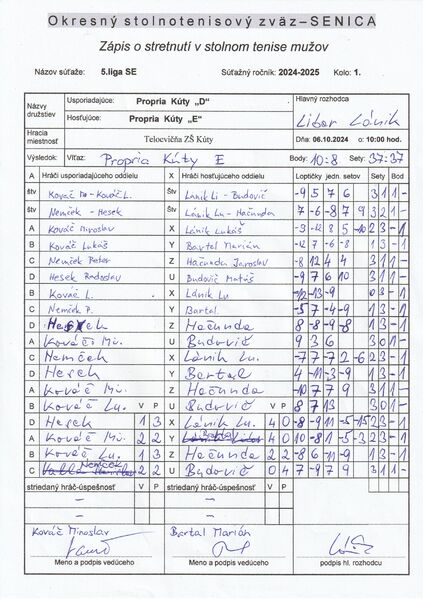 Okresný stolnotenisový zväz – SENICA
Zápis o stretnutí v stolnom tenise mužov
Názov súťaže: 5.liga SE Súťažný ročník: 2024-2025 Kolo: 1.
Názvy družstiev
Usporiadajúce: Propria Kúty „D"
Hosťujúce: Propria Kúty „E"
Hlavný rozhodca
Libor Lánik
Hracia miestnosť Telocvičňa ZŠ Kúty Dňa: 06.10.2024 o: 10:00 hod.
Výsledok: Víťaz: Propria Kúty E Body: 10:8 Sety: 37:37
A Hráči usporiadajúceho oddielu X Hráči hosťujúceho oddielu Loptičky jedn. setov Sety Bod
štv Kováč Mi - Kováč L. Štv Lánik Li - Budovič -9 5 7 6 3 1 1 -
štv Nemček - Hesek Štv Lánik Lu - Hačunda 7 -6 -8 7 9 3 2 1 -
A Kováč Miroslav X Lánik Lukáš
B Kováč Lukáš Y Bartal Marián -12 7 -6 -8 1 3 - 1
C Nemček Peter Z Hačunda Jaroslav -8 12 4 4 3 1 1 -
D Hesek Radoslav U Budovič Matúš -9 7 6 10 3 1 1 -
B Kováč L. X Lánik Lu -12 -13 -9 0 3 - 1
C Nemček P. Y Bartal -5 7 -4 -9 1 3 - 1
D Hesek Z Hačunda 8 -8 -9 -8 1 3 - 1
A Kováč Mi. U Budovič 9 3 6 3 0 1 -
C Nemček X Lánik Lu. -7 7 -7 2 -6 2 3 - 1
D Hesek Y Bartal 4 -11 -3 -9 1 3 - 1
A Kováč Mi. Z Hačunda -10 7 7 9 3 1 1 -
B Kováč Lu. V P U Budovič V P 8 7 13 3 0 1 -
D Hesek 1 3 X Lánik Lu. 4 0 8 -9 11 -5 -15 2 3 - 1
A Kováč Mi. 2 2 Y Bartal 4 0 10 -8 1 -5 -3 2 3 - 1
B Kováč Lu. 1 3 Z Hačunda 2 2 -8 6 -11 -9 1 3 - 1
C Nemček 2 2 U Budovič 0 4 7 -9 7 9 3 1 1 -
striedaný hráč-úspešnosť V P striedaný hráč-úspešnosť V P
Kováč Miroslav Bartal Marián
Meno a podpis vedúceho Meno a podpis vedúceho podpis hl. rozhodcu